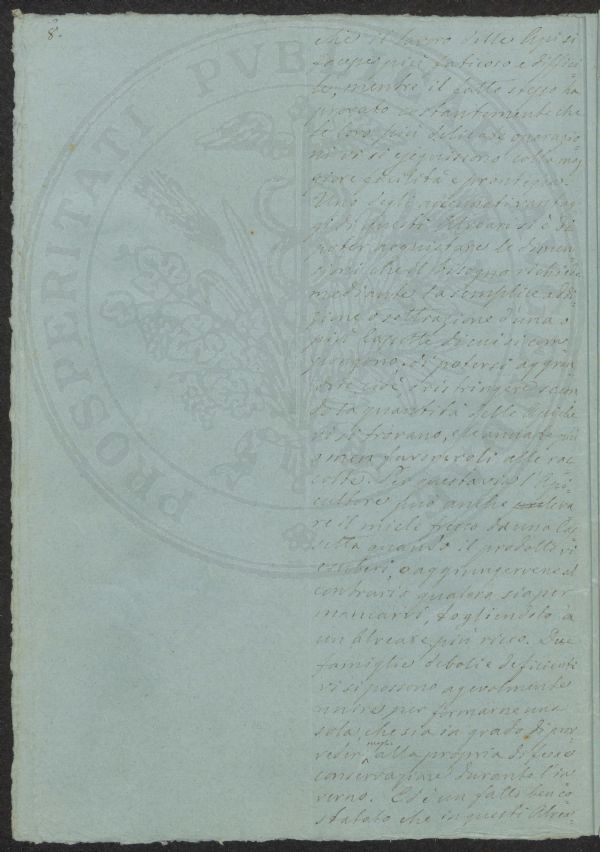 8.
che il lavoro delle Api si
facesse più faticoso e diffici
le, mentre il fatto stesso ha
provato costantemente che
le loro più delicate operazio
ni vi si eseguiscono colla mag
giore facilità e prontezza.
Uno degli accennati vantag
gi di questi Alveari si è di
poter acquistare le dimen
sioni che il bisogno richiede
mediante la semplice addi
zione o sottrazione d'una o
più Cassette di cui si com
pongono, di potersi aggran
dire cioè o ristringere secon
do la quantità delle Api che
vi si trovano, e le annate più
o men favorevoli alle rac
colte. Per questa via l'Api
cultore può anche leva
re il miele fresco da una Cas
setta quando il prodotto vi
esuberi, o aggiungervene al
contrario qualora sia per
mancarvi, togliendolo a
un alveare più ricco. Due
famiglie deboli e deficienti
vi si possono agevolmente
unire per formarne una
sola, che sia in grado di prov
vedere meglio alla propria difesa e
conservazione durante l'in
verno. Ed è un fatto ben co
statato che in questi Alvea
PROSPERITATI PUBLICAE